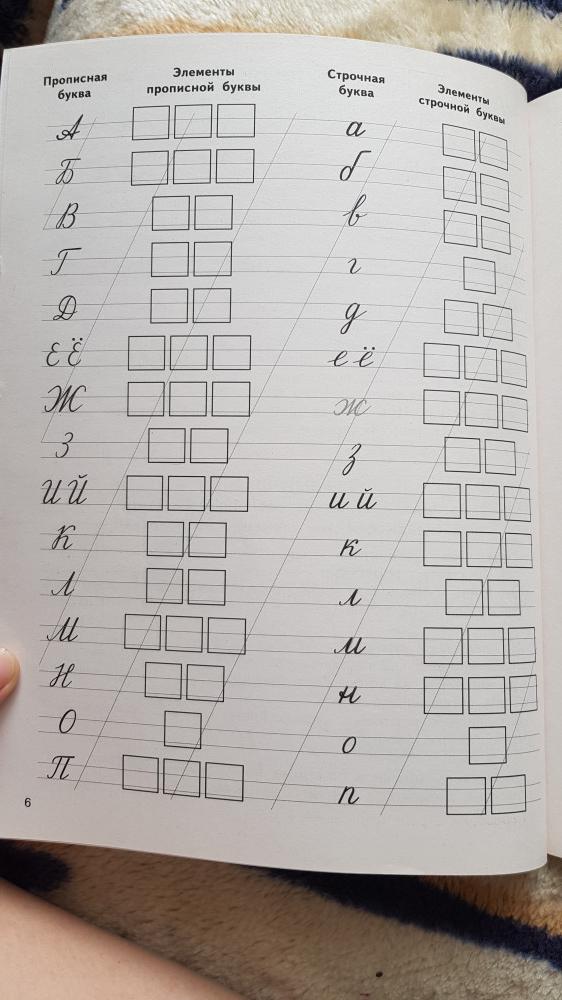 Прописная буква Элементы прописной буквы Строчная буква Элементы строчной буквы
А а
Б б
В в
Г г
Д д
Е Ё е ё
Ж ж
З з
И Й и й
К к
Л л
М м
Н н
О о
П п
6